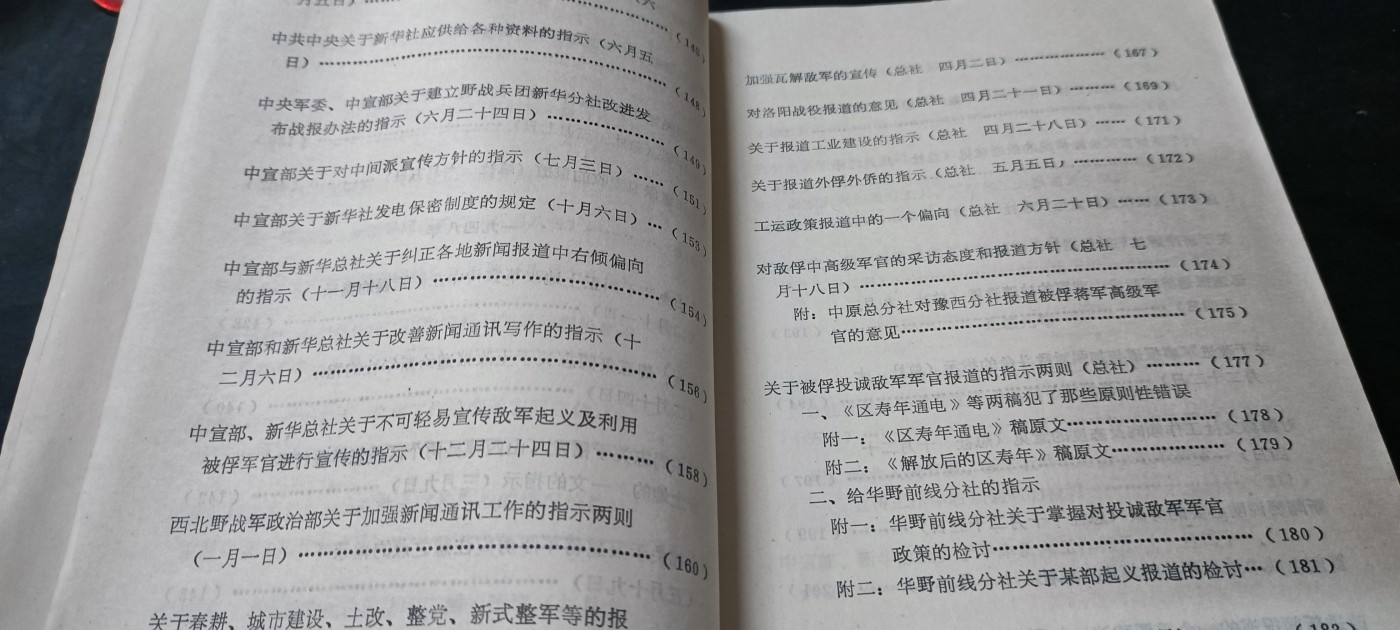 月五日)
中共中央关于新华社应供给各种资料的指示(六月五
日)……………………(148)
中央军委、中宣部关于建立野战兵团新华分社改进发
布战报办法的指示(六月二十四日)…………(149)
中宣部关于对中间派宣传方针的指示(七月三日)……(151)
中宣部关于新华社发电保密制度的规定(十月六日)…(153)
中宣部与新华总社关于纠正各地新闻报道中右倾偏向
的指示(十一月十八日)……………………(154)
中宣部和新华总社关于改善新闻通讯写作的指示(十
二月六日)……………………(156)
中宣部、新华总社关于不可轻易宣传敌军起义及利用
被俘军官进行宣传的指示(十二月二十四日)………(158)
西北野战军政治部关于加强新闻通讯工作的指示两则
(一月一日)……………………(160)
关于春耕、城市建设、土改、整党、新式整军等的报
加强瓦解敌军的宣传(总社 四月二日)……………(167)
对洛阳战役报道的意见(总社 四月二十一日)………(169)
关于报道工业建设的指示(总社 四月二十八日)……(171)
关于报道外俘外侨的指示(总社 五月五日)…………(172)
工运政策报道中的一个偏向(总社 六月二十日)……(173)
对敌俘中高级军官的采访态度和报道方针(总社 七
月十八日)……………………(174)
附:中原总分社对豫西分社报道被俘蒋军高级军
官的意见……………………(175)
关于被俘投诚敌军军官报道的指示两则(总社)………(177)
一、《区寿年通电》等两稿犯了那些原则性错误
附一:《区寿年通电》稿原文……………(178)
附二:《解放后的区寿年》稿原文…………(179)
二、给华野前线分社的指示
附一:华野前线分社关于掌握对投诚敌军军官
政策的检讨……………………(180)
附二:华野前线分社关于某部起义报道的检讨…(181)